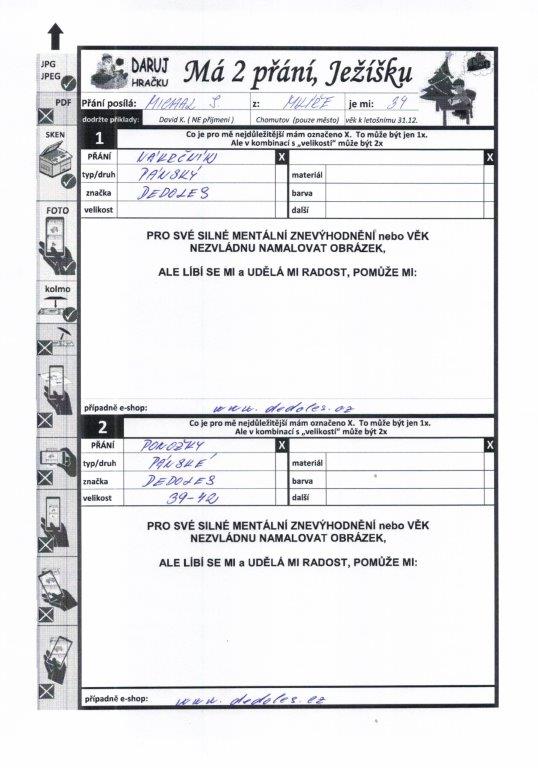 JPG
JPEG
PDF
SKEN
FOTO
kolmo
DARUJ
HRAČKU
Má 2 přání, Ježíšku
Přání posílá: MICHAL S. z: MILÍČE je mi: 39
dodržte příklady: David K. ( NE příjmení ) Chomutov (pouze město) věk k letošnímu 31.12.
1 Co je pro mě nejdůležitější mám označeno X. To může být jen 1x.
Ale v kombinaci s „velikostí“ může být 2x
PŘÁNÍ NÁKRČNÍK X X
typ/druh PÁNSKÝ materiál
značka DEDOLES barva
velikost další
PRO SVÉ SILNÉ MENTÁLNÍ ZNEVÝHODNĚNÍ nebo VĚK
NEZVLÁDNU NAMALOVAT OBRÁZEK,
ALE LÍBÍ SE MI a UDĚLÁ MI RADOST, POMŮŽE MI:
případně e-shop: www.dedoles.cz
2 Co je pro mě nejdůležitější mám označeno X. To může být jen 1x.
Ale v kombinaci s „velikostí“ může být 2x
PŘÁNÍ PONOŽKY X X
typ/druh PÁNSKÉ materiál
značka DEDOLES barva
velikost 39-42 další
PRO SVÉ SILNÉ MENTÁLNÍ ZNEVÝHODNĚNÍ nebo VĚK
NEZVLÁDNU NAMALOVAT OBRÁZEK,
ALE LÍBÍ SE MI a UDĚLÁ MI RADOST, POMŮŽE MI:
případně e-shop: www.dedoles.cz